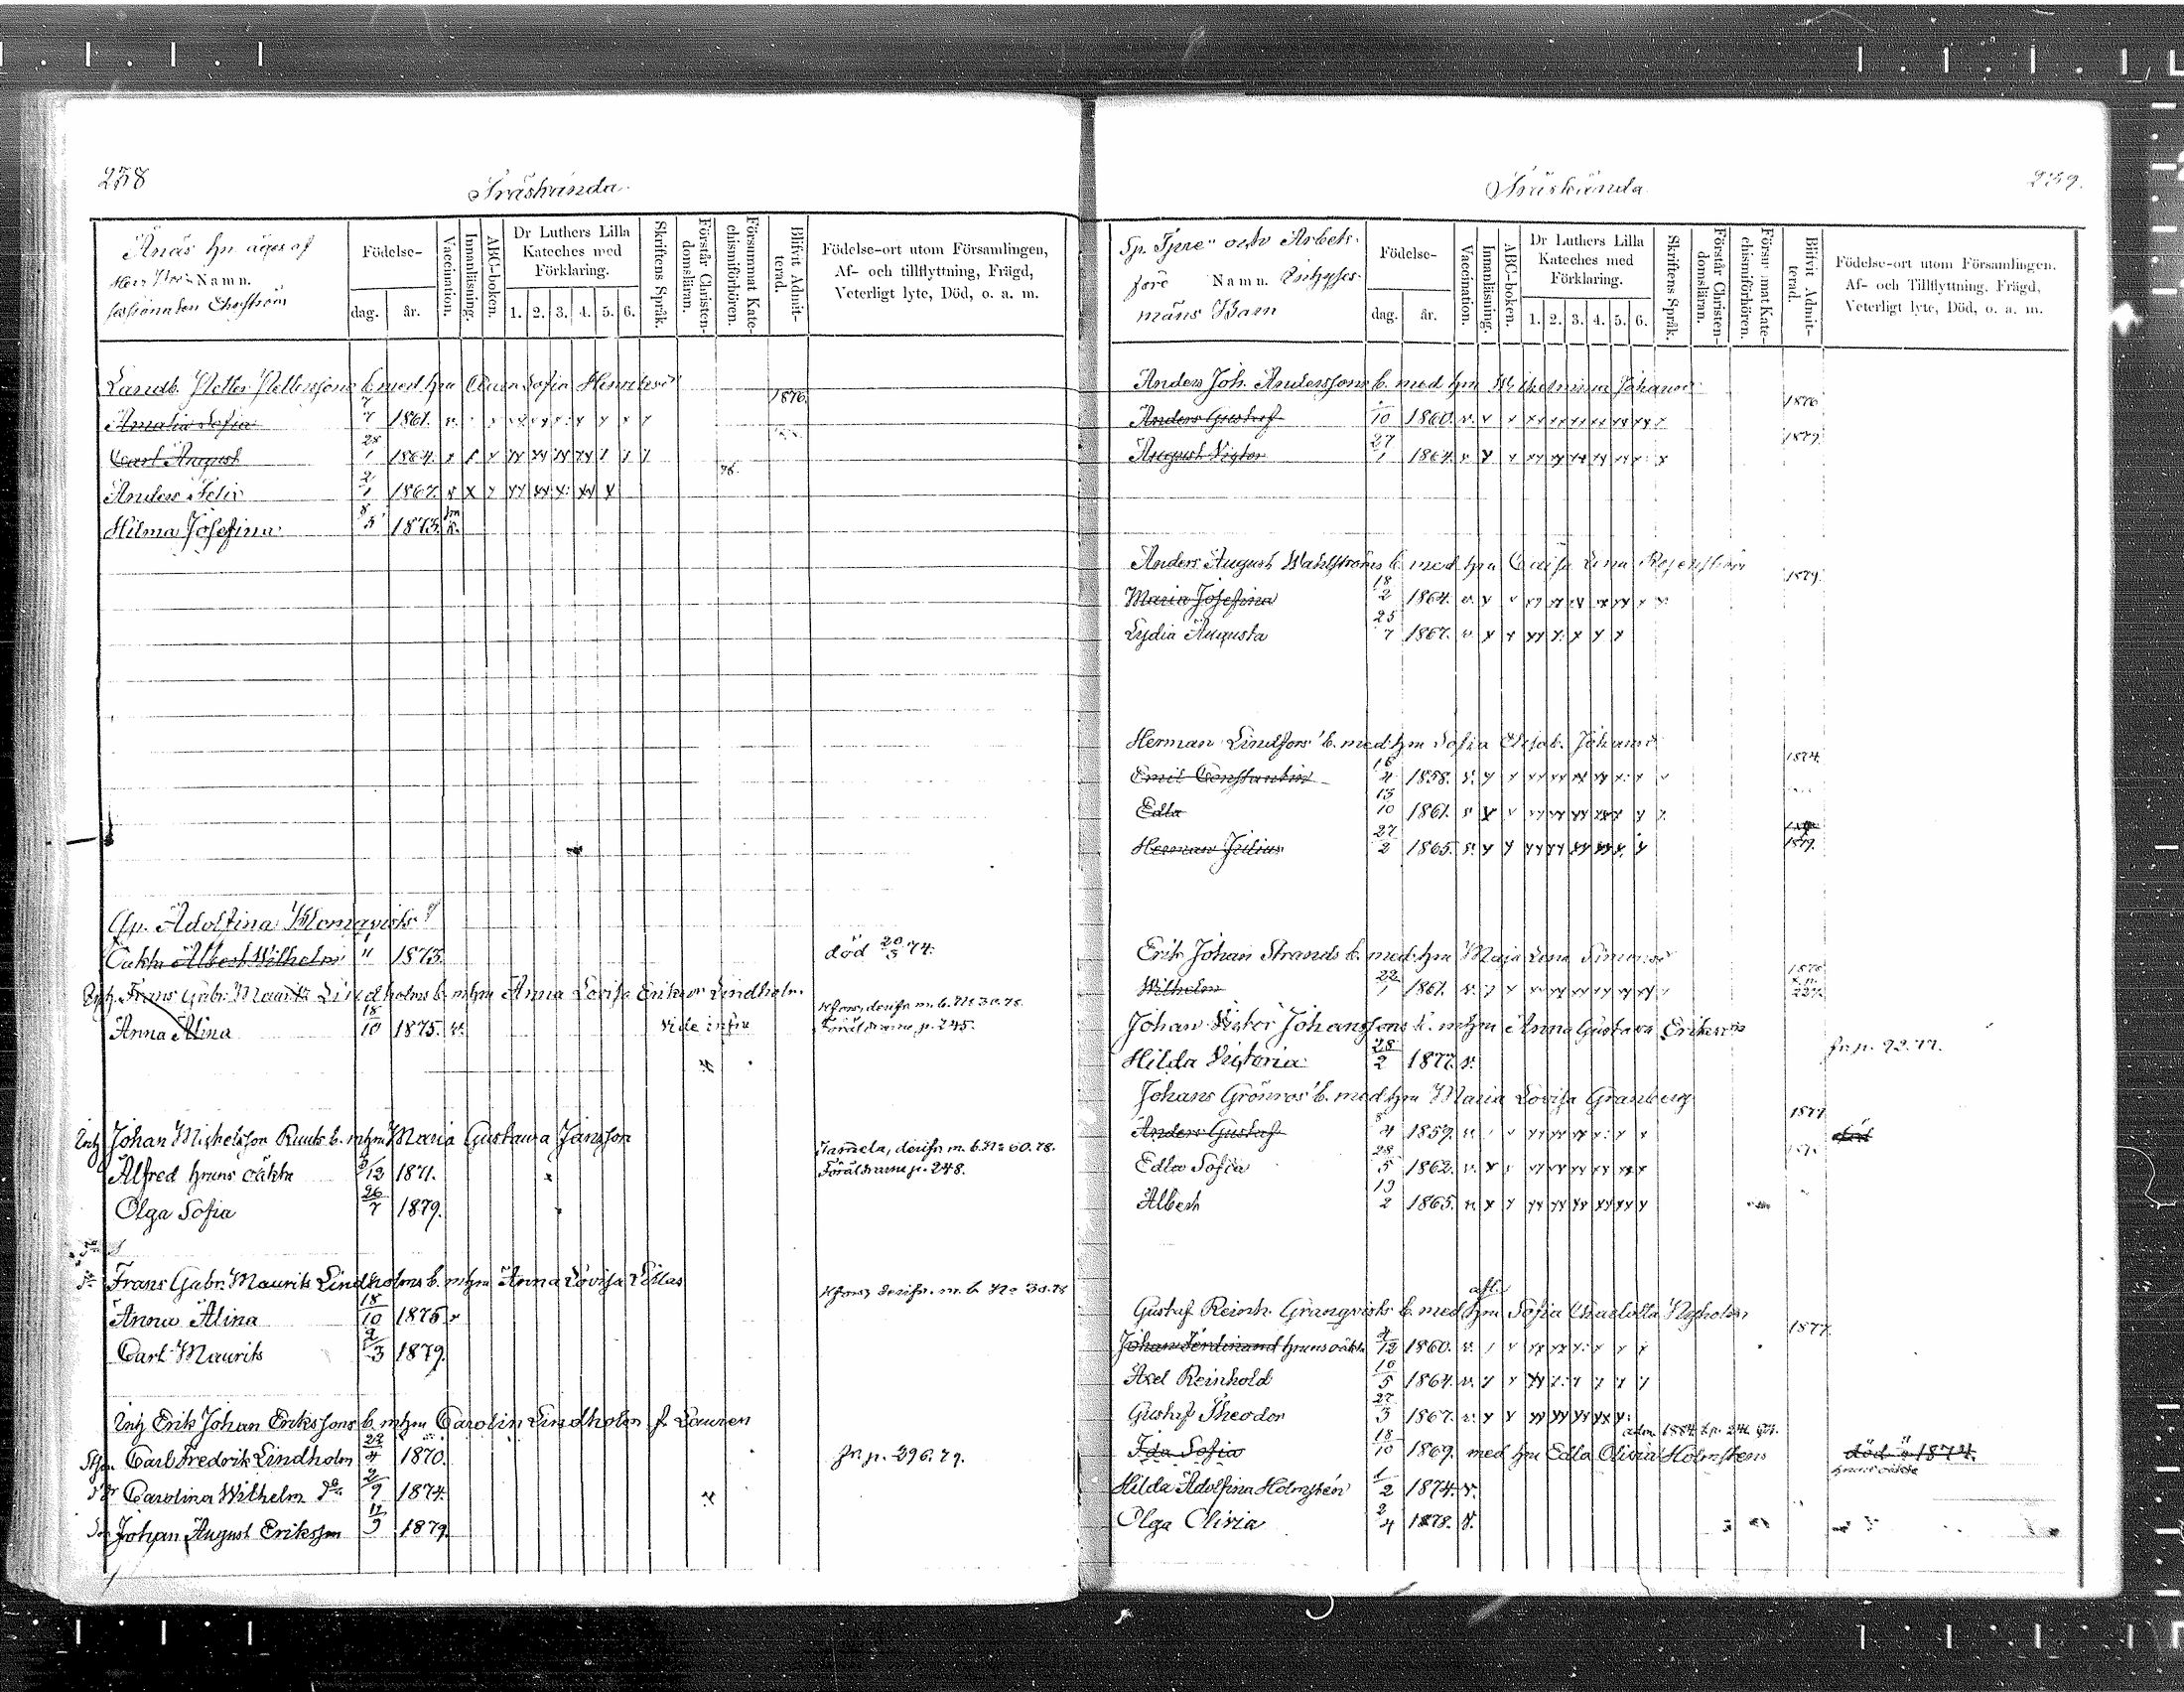 238
Träskända.
Änäs hn äges af
Namn.
Födelse-
dag.
år.
Vaccination.
Innanläsning.
ABC-boken.
Dr Luthers Lilla
Kateches med
Förklaring.
1. 2. 3. 4. 5. 6.
Skriftens Språk.
Förstår Christen-
domsläran.
Försummat Kate-
chismiförhören.
Blifvit Admit-
terad.
Födelse-ort utom Församlingen,
Af- och tillflyttning, Frägd,
Veterligt lyte, Död, o. a. m.
Landb. Petter Pettersons b. med hu Sofia Henriksdr
1876.
Amalia Sofia 7/7 1861. v.
Carl August 28/1 1864.
Anders Felix 2/1 1867.
76.
Hilma Josefina 8/3 1873.
Adolfina Blomqvists
Oäkta Albert Wilhelm " 1873. död 20/3 74.
Frans Gabr. Maurits Lindholms b. m hu Anna Lovisa Eriksdr Lindholm.
m. b. No 30. 78.
Anna Alina 18/10 1875. v. vide infra Föräldrarne p. 245.
Inh Johan Michelsson Ruuts b. m hu Maria Gustawa Jansson
Tammela, m. b. No 60. 78.
Alfred hruns oäkta /12 1871. Föräldrarne p. 248.
Olga Sofia 26/7 1879.
Frans Gabr. Maurits Lindholms b. m hu Anna Lovisa
m. b. No 30. 78
Anna Alina 18/10 1875 v
Carl Maurits 2/3 1879.
Inh Erik Johan Erikssons b. m hu Carolin Lindholm f. Lauren
Carl Fredrik Lindholm 22/4 1870. fr. p. 296. 79.
Carolina Wilhelm do 2/9 1874.
Johan August Eriksson 11/9 1879.
Träskända
239.
Sp. Tjene- och Arbets-
före Namn. Inhyses-
mäns Barn
Födelse-
dag.
år.
Vaccination.
Innanläsning.
ABC-boken.
Dr Luthers Lilla
Kateches med
Förklaring.
1. 2. 3. 4. 5. 6.
Skriftens Språk.
Förstår Christen-
domslärann.
Försummat Kate-
chismiförhören.
Blifvit Admit-
terad.
Födelse-ort utom Församlingen.
Af- och Tillflyttning. Frägd,
Veterligt lyte, Död, o. a. m.
Anders Joh. Anderssons b. med hu Wilhelmina Johansdr
1876
Anders Gustaf /10 1860. v.
1879
August Victor 27/1 1864. v
Anders August Wahlströms b. med hu Caisa Lena Rosenström
1879.
Maria Josefina 18/2 1864. v.
Lydia Augusta 25/7 1867. v.
Herman Lindfors b. med hu Sofia Elisab. Johansd
1874.
Emil Constantin 16/4 1858. v.
Edla 13/10 1861. v
Herman Julius 27/2 1865. v. 1879.
Erik Johan Strands b. med hu Maja Lena Simonsd
Wilhelm 22/1 1861. v. 227.
Johan Victor Johanssons b. m hu Anna Gustava Eriksdr
fr. p. 92. 77.
Hilda Victoria 28/2 1877. v.
Johans Grönros b. med hu Maria Lovisa Granberg
1877
Anders Gustaf /4 1859. v. död
Edla Sofia 28/5 1862. v.
Albert 13/2 1865. v.
afl.
Gustaf Reinh. Granqvists b. med hu Sofia Charlotta Nyholm
1877
Johan Ferdinand hruns oäkta /12 1860. v.
Axel Reinhold 10/5 1864. v.
Gustaf Theodor 27/3 1867. v.
adm. 1884
Ida Sofia 18/10 1869. med hu Edla Olivia Holmstens död " 1874.
hruns oäkta
Hilda Adolfina Holmstén 1/2 1874. v.
Olga Olivia 2/4 1878. v.